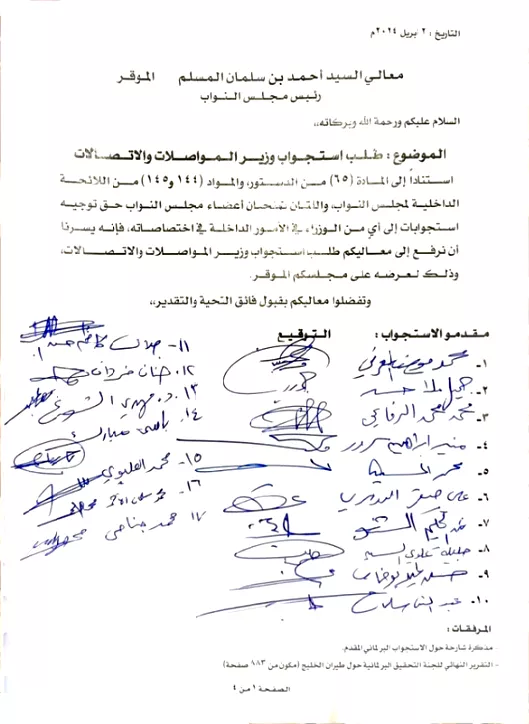 التاريخ : ٢ بريل ٢٠٢٤م
معالي السيد أحمد بن سلمان المسلم الموقر
رئيس مجلس النواب
السلام عليكم ورحمة الله وبركاته،،
الموضوع : طلب استجواب وزير المواصلات والاتصالات
استناداً إلى المادة (٦٥) من الدستور، والمواد (١٤٤ و١٤٥) من اللائحة
الداخلية لمجلس النواب، واللتان تمنحان أعضاء مجلس النواب حق توجيه
استجوابات إلى أي من الوزراء في الأمور الداخلة في اختصاصاته، فإنه يسرنا
أن نرفع إلى معاليكم طلب استجواب وزير المواصلات والاتصالات،
وذلك لعرضه على مجلسكم الموقر.
وتفضلوا معاليكم بقبول فائق التحية والتقدير،،
مقدمو الاستجواب : التوقيع
١-محمد
٢-
٣-محمد الرفاعي
٤-منير ابراهيم سرور
٥-محمد
٦-علي صقر الدوسري
٧-
٨-جليلة علوي السيد
٩-
١٠-
١١-جلال كاظم حسن
١٢-حنان فردان
١٣-د. مهدي الشويخ
١٤-
١٥-محمد العليوي
١٦-
١٧-محمد جناحي
المرفقات :
- مذكرة شارحة حول الاستجواب البرلماني المقدم.
- التقرير النهائي للجنة التحقيق البرلمانية حول طيران الخليج (مكون من ٨٨٣ صفحة)
الصفحة ١ من ٤